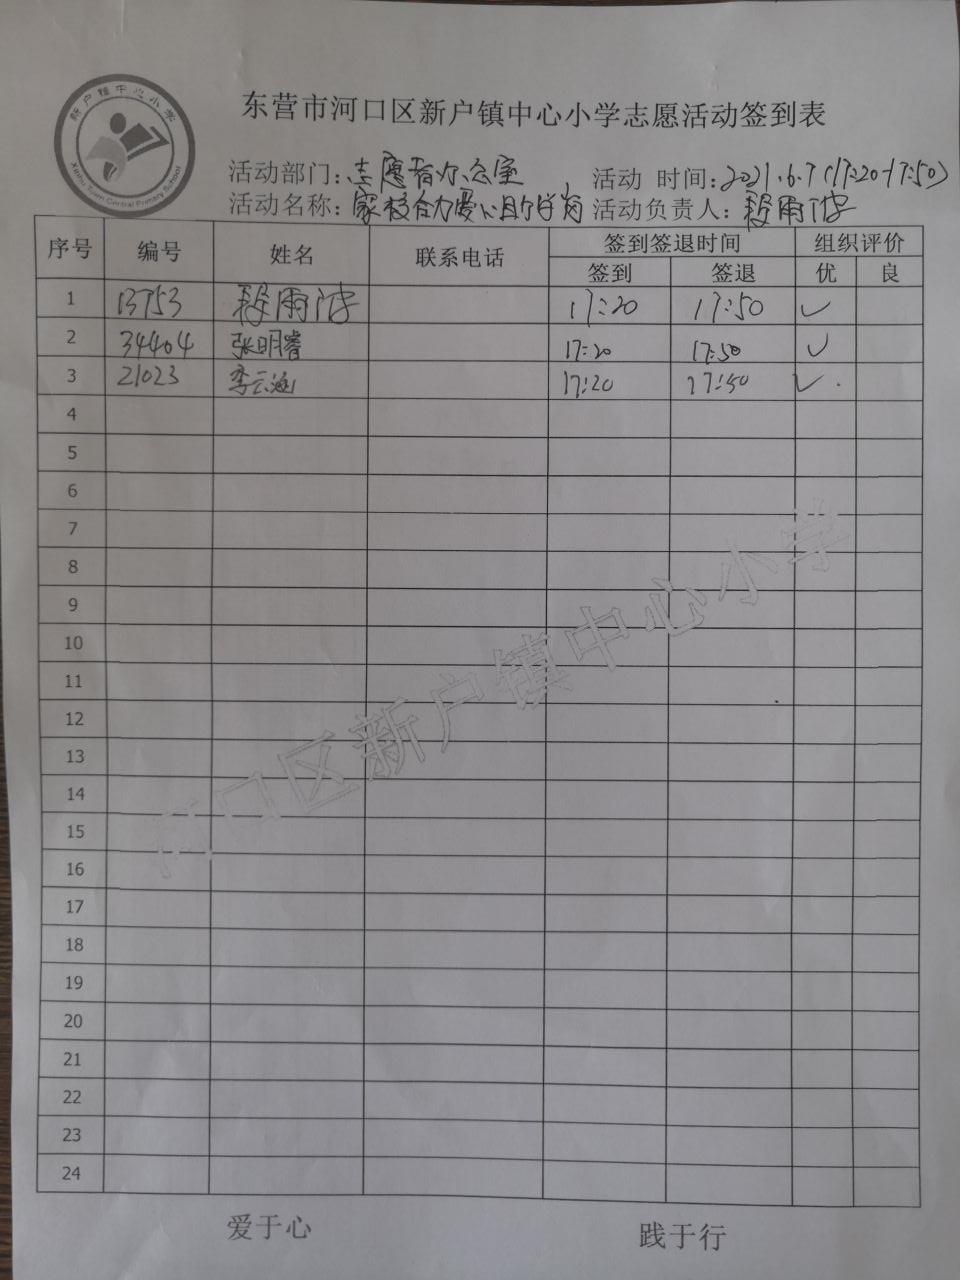 新户镇中心小学
Xinhu Town Central Primary School
东营市河口区新户镇中心小学志愿活动签到表
活动部门：志愿者办公室 活动 时间：2021.6.7（17:20-17:50）
活动名称：家校合力爱心护学岗 活动负责人：段雨
序号 编号 姓名 联系电话 签到签退时间 组织评价
签到 签退 优 良
1 13753 段雨 17:20 17:50 ✓
2 34404 张明睿 17:20 17:50 ✓
3 21023 李云涵 17:20 17:50 ✓
4
5
6
7
8
9
10
11
12
13
14
15
16
17
18
19
20
21
22
23
24
河口区新户镇中心小学
爱于心 践于行